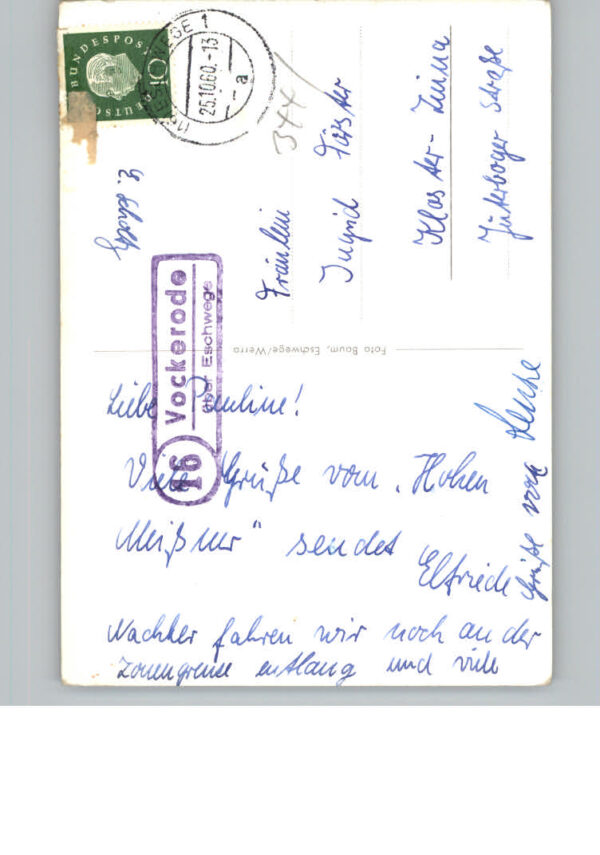 DEUTSCHE
BUNDESPOST
10
ESCHWEGE 1
25.10.60.-13
a
344
Fräulein
Ingrid Förster
Kloster-Zinna
Jüterboger Straße
16 Vockerode
über Eschwege
Foto Baum, Eschwege/Werra
Liebe Pauline!
Viele Grüße vom „Hohen
Meißner" sendet
Elfriede
Nachher fahren wir noch an der
Zonengrenze entlang und viele
Grüße von